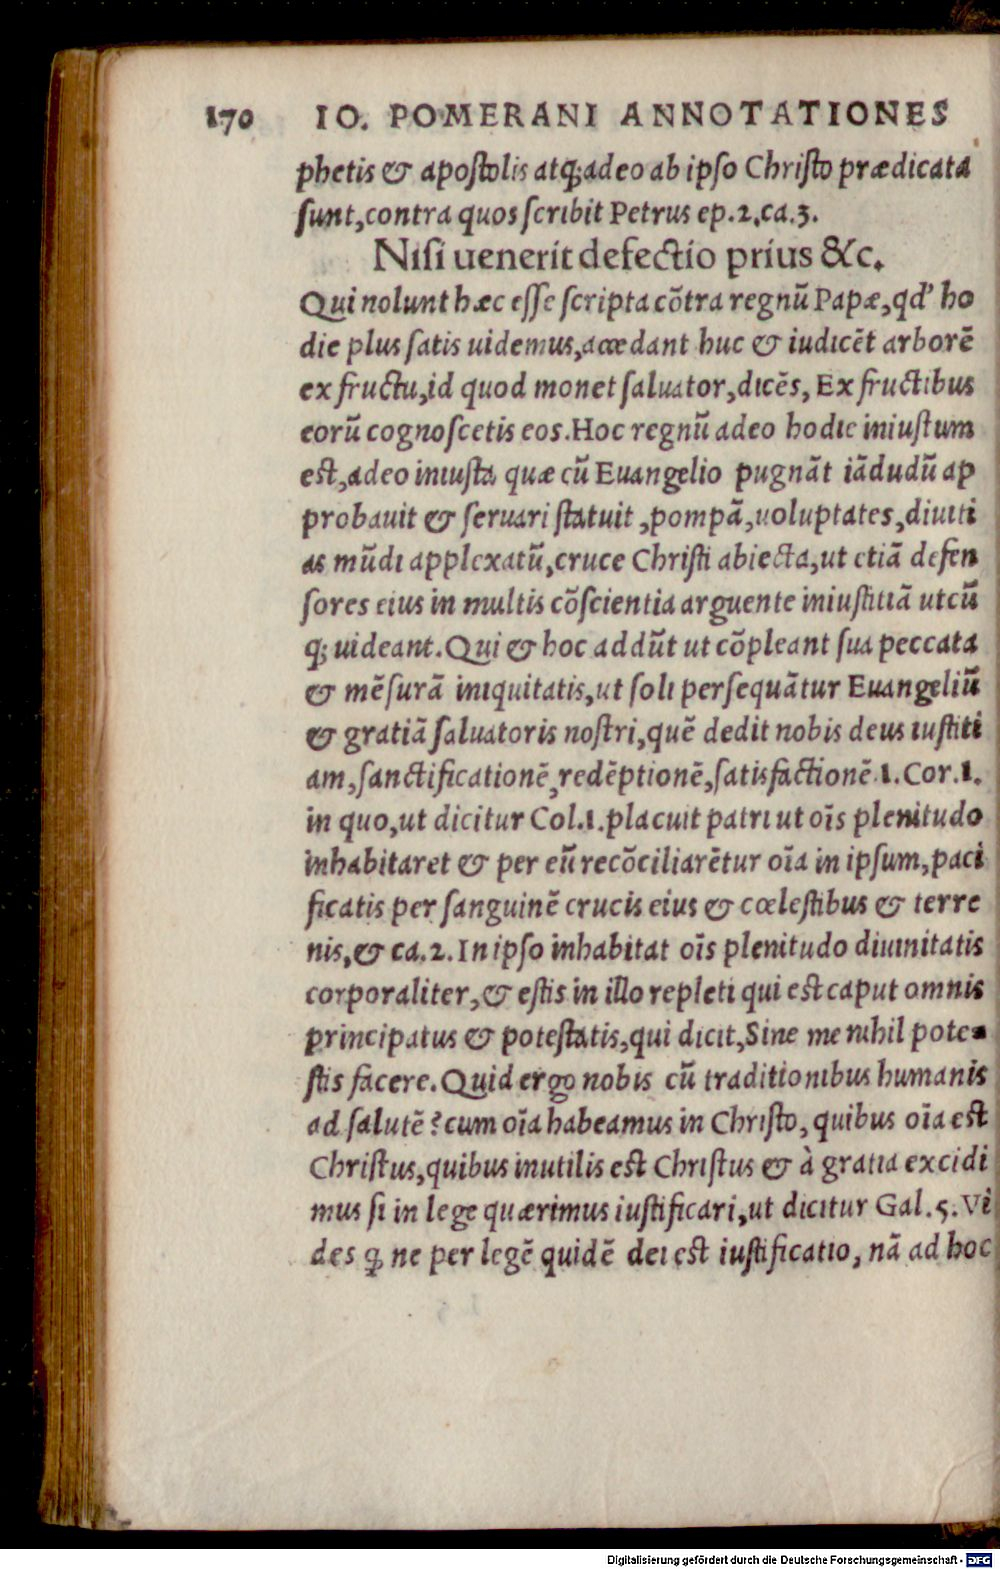 170 IO. POMERANI ANNOTATIONES
phetis & apostolis atq; adeo ab ipso Christo prædicata
sunt, contra quos scribit Petrus ep. 2. ca. 3.
Nisi uenerit defectio prius &c.
Qui nolunt hæc esse scripta cõtra regnũ Papæ, qd' ho
die plus satis uidemus, accedant huc & iudicẽt arborẽ
ex fructu, id quod monet saluator, dicẽs, Ex fructibus
eorũ cognoscetis eos. Hoc regnũ adeo hodie iniustum
est, adeo iniusta quæ cũ Euangelio pugnãt iãdudũ ap
probauit & seruari statuit, pompã, uoluptates, diuiti
as mũdi applexatũ, cruce Christi abiecta, ut etiã defen
sores eius in multis cõscientia arguente iniustitiã utcũ
q; uideant. Qui & hoc addũt ut cõpleant sua peccata
& mẽsurã iniquitatis, ut soli persequãtur Euangeliũ
& gratiã saluatoris nostri, quẽ dedit nobis deus iustiti
am, sanctificationẽ, redẽptionẽ, satisfactionẽ 1. Cor. 1.
in quo, ut dicitur Col. 1. placuit patri ut oĩs plenitudo
inhabitaret & per eũ recõciliarẽtur oĩa in ipsum, paci
ficatis per sanguinẽ crucis eius & cœlestibus & terre
nis, & ca. 2. In ipso inhabitat oĩs plenitudo diuinitatis
corporaliter, & estis in illo repleti qui est caput omnis
principatus & potestatis, qui dicit, Sine me nihil pote-
stis facere. Quid ergo nobis cũ traditionibus humanis
ad salutẽ? cum oĩa habeamus in Christo, quibus oĩa est
Christus, quibus inutilis est Christus & à gratia excidi
mus si in lege quærimus iustificari, ut dicitur Gal. 5. Vi
des ꝙ ne per legẽ quidẽ dei est iustificatio, nã ad hoc
Digitalisierung gefördert durch die Deutsche Forschungsgemeinschaft - DFG